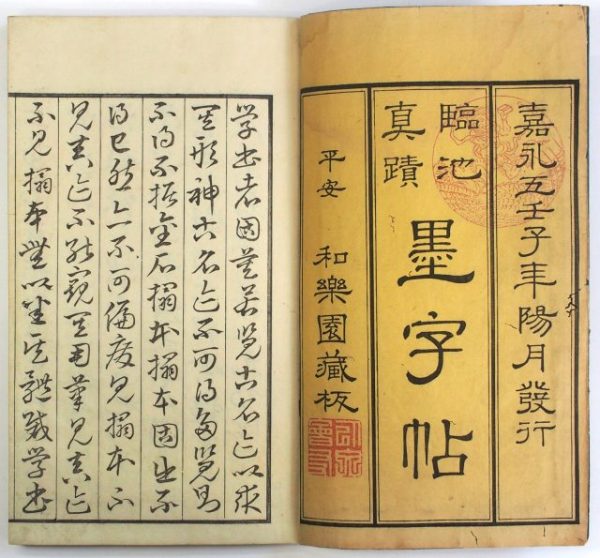 嘉永五壬子年陽月發行
臨池
真蹟
墨字帖
平安 和樂園藏板
学書者固莫若覧古名迹以求
其形神古名迹不可得多覧則
不得不 金石搨本搨本固出不
得已然亦不可偏廢見搨本不
見真迹不能窺其用筆見真迹
不見搨本無以 其體裁学書